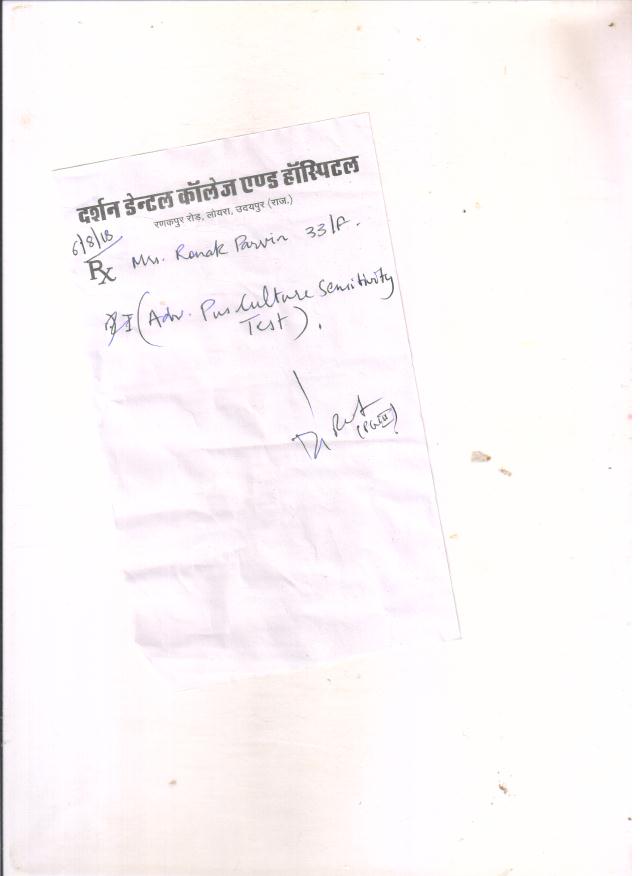 दर्शन डेन्टल कॉलेज एण्ड हॉस्पिटल
रणकपुर रोड़, लोयरा, उदयपुर (राज.)
6/8/18
Rx Mrs. Ronak Parvin 33/F.
(Adv. Pus Culture Sensitivity
Test).
Dr
(PG III)